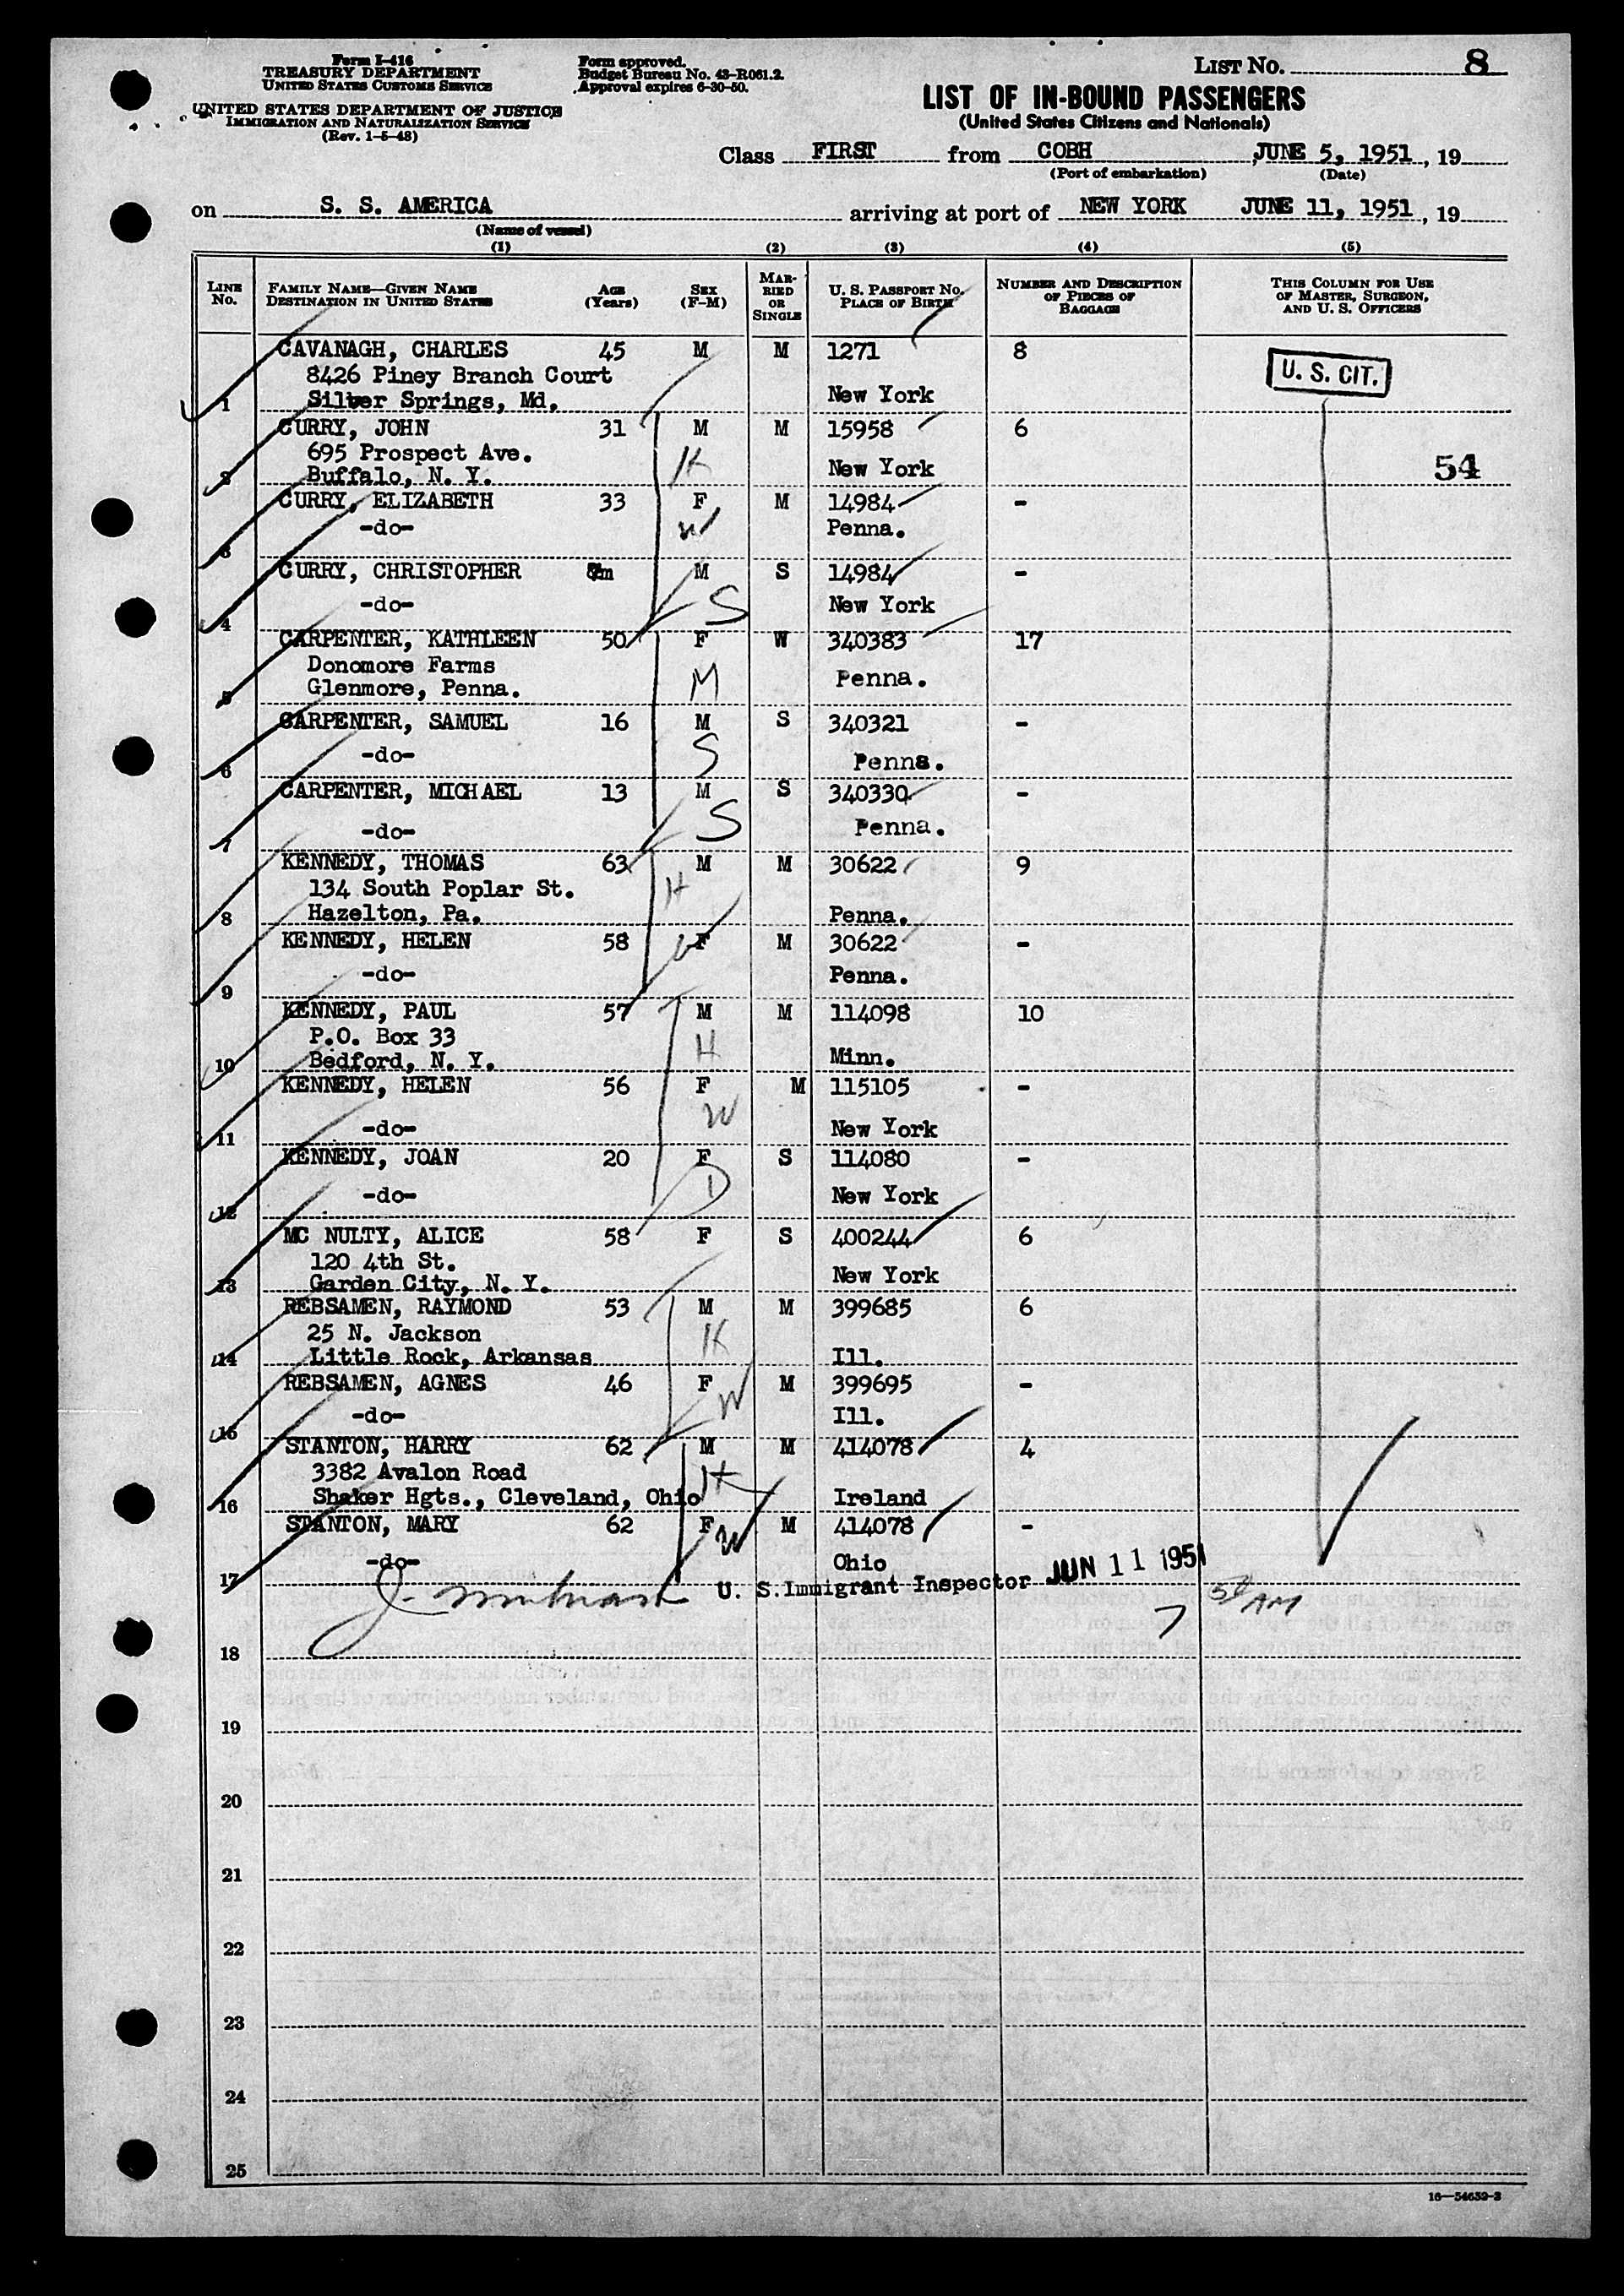 Form I-416
TREASURY DEPARTMENT
UNITED STATES CUSTOMS SERVICE
UNITED STATES DEPARTMENT OF JUSTICE
IMMIGRATION AND NATURALIZATION SERVICE
(Rev. 1-5-48)
Form approved.
Budget Bureau No. 43-R061.2.
Approval expires 6-30-50.
LIST NO. 8
LIST OF IN-BOUND PASSENGERS
(United States Citizens and Nationals)
Class FIRST from COBH, JUNE 5, 1951, 19
(Port of embarkation) (Date)
on S. S. AMERICA arriving at port of NEW YORK JUNE 11, 1951, 19
(Name of vessel)
(1) (2) (3) (4) (5)
LINE NO. FAMILY NAME—GIVEN NAME DESTINATION IN UNITED STATES AGE (Years) SEX (F-M) MARRIED OR SINGLE U. S. PASSPORT NO. PLACE OF BIRTH NUMBER AND DESCRIPTION OF PIECES OF BAGGAGE THIS COLUMN FOR USE OF MASTER, SURGEON, AND U. S. OFFICERS
CAVANAGH, CHARLES 45 M M 1271 8
8426 Piney Branch Court U. S. CIT.
1 Silver Springs, Md. New York
CURRY, JOHN 31 M M 15958 6
695 Prospect Ave. H
2 Buffalo, N. Y. New York 54
CURRY, ELIZABETH 33 F M 14984 -
-do- W Penna.
3
CURRY, CHRISTOPHER M S 14984 -
-do- S New York
4
CARPENTER, KATHLEEN 50 F W 340383 17
Donomore Farms
5 Glenmore, Penna. M Penna.
CARPENTER, SAMUEL 16 M S 340321 -
-do- S Penna.
6
CARPENTER, MICHAEL 13 M S 340330 -
-do- S Penna.
7
KENNEDY, THOMAS 63 M M 30622 9
134 South Poplar St. H
8 Hazelton, Pa. Penna.
KENNEDY, HELEN 58 F M 30622 -
-do- Penna.
9
KENNEDY, PAUL 57 M M 114098 10
P.O. Box 33 H
10 Bedford, N. Y. Minn.
KENNEDY, HELEN 56 F M 115105 -
-do- W New York
11
KENNEDY, JOAN 20 F S 114080 -
-do- D New York
12
MC NULTY, ALICE 58 F S 400244 6
120 4th St.
13 Garden City, N. Y. New York
REBSAMEN, RAYMOND 53 M M 399685 6
25 N. Jackson H
14 Little Rock, Arkansas Ill.
REBSAMEN, AGNES 46 F M 399695 -
-do- W Ill.
15
STANTON, HARRY 62 M M 414078 4
3382 Avalon Road H
16 Shaker Hgts., Cleveland, Ohio Ireland
STANTON, MARY 62 F M 414078 -
-do- W Ohio
17 U. S. Immigrant Inspector JUN 11 1951
7 50 AM
18
19
20
21
22
23
24
25
16—54652-2